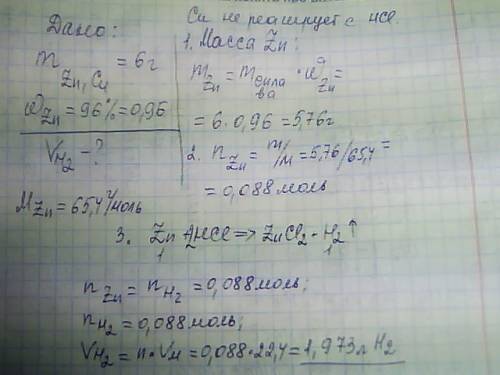 Дано:
m Zn, Cu = 6г
ω Zn = 96% = 0,96
V H2 - ?
M Zn = 65,4 г/моль
Cu не реагирует с HCl.
1. Масса Zn:
m Zn = m сплава · ω Zn =
= 6 · 0,96 = 5,76г
2. n Zn = m/M = 5,76/65,4 =
= 0,088 моль
3. Zn + 2HCl => ZnCl2 + H2↑
1 1
n Zn = n H2 = 0,088 моль;
n H2 = 0,088 моль;
V H2 = n · Vм = 0,088 · 22,4 = 1,973 л H2